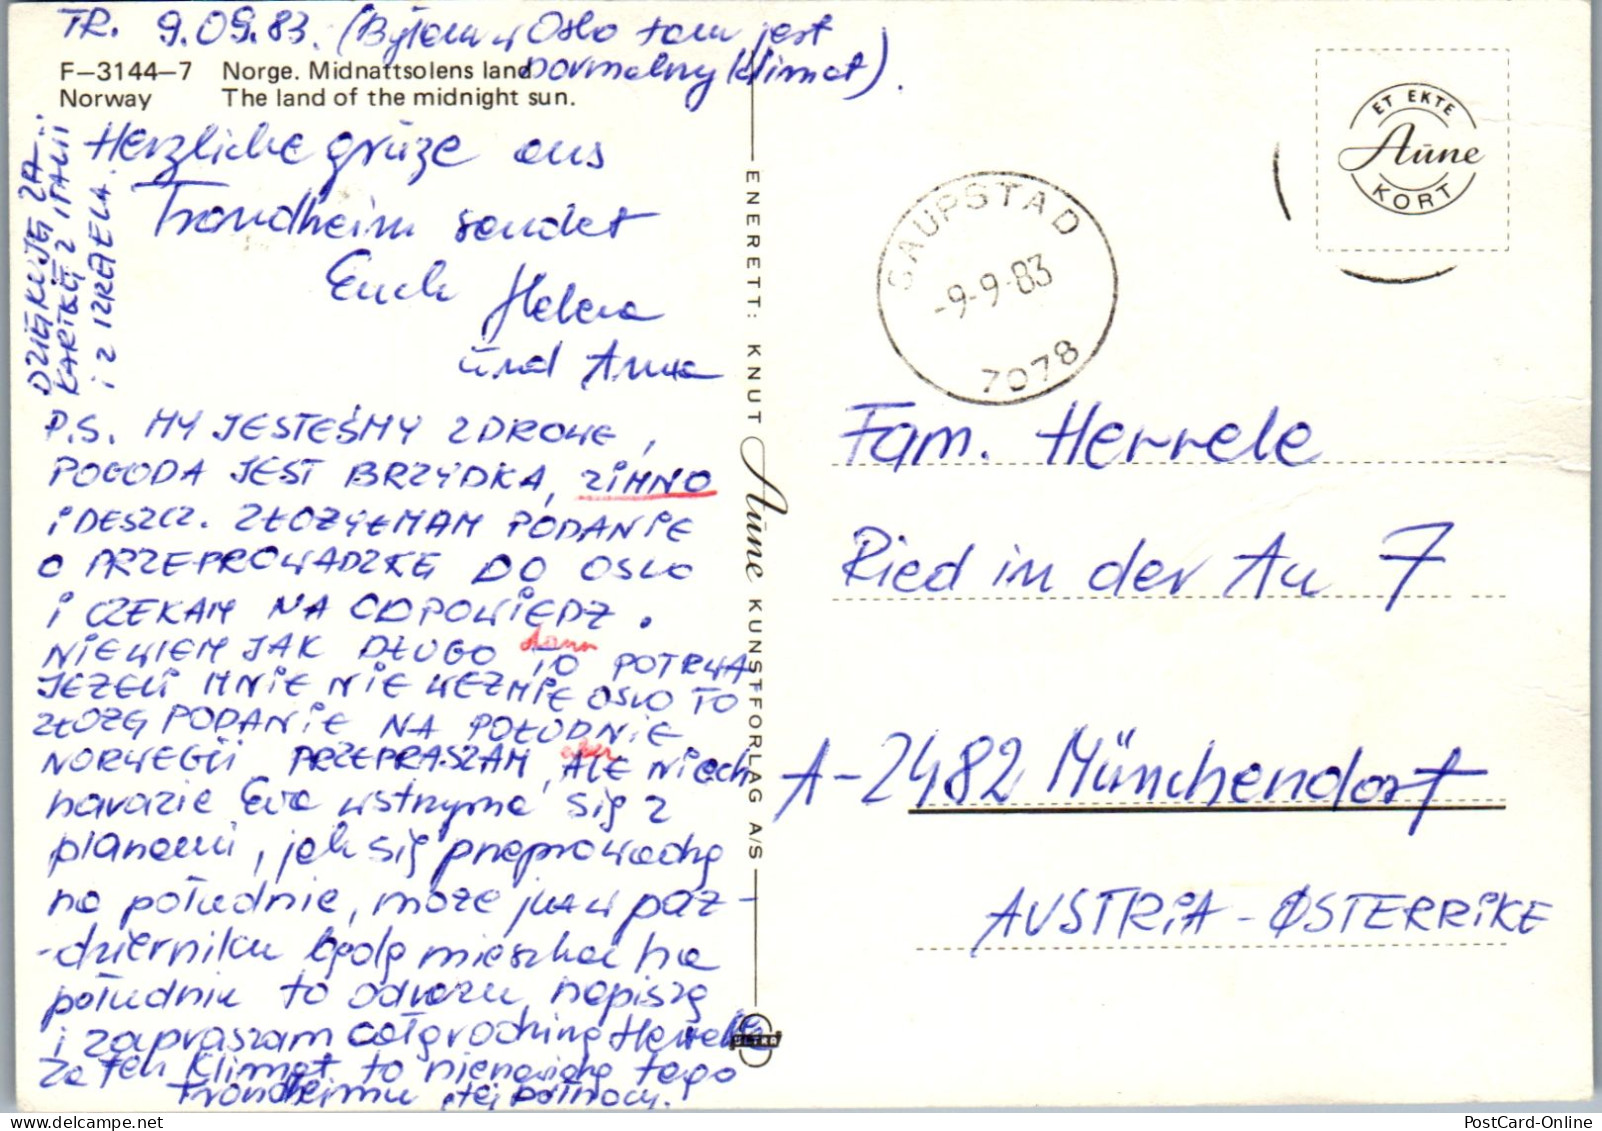 TR. 9.09.83. (Byłam w Oslo tam jest
normalny klimat).
F-3144-7 Norge. Midnattsolens land
Norway The land of the midnight sun.
DZIĘKUJĘ ZA
KARTKĘ Z ITALII
I Z IZRAELA.
Herzliche grüze aus
Trondheim sendet
Euch Helena
und Anna
P.S. MY JESTEŚMY ZDROWE,
POGODA JEST BRZYDKA, ZIMNO
i DESZCZ. ZŁOŻYŁAM PODANIE
O PRZEPROWADZKĘ DO OSLO
i CZEKAM NA ODPOWIEDZ.
NIEWIEM JAK DŁUGO TO POTRWA
JEZELI MNIE NIE WEZMIE OSLO TO
ZŁOŻĘ PODANIE NA POŁUDNIE
NORWEGII, PRZEPRASZAM, ALE NIECH
narazie Ewa wstrzyma się z
planami, jak się przeprowadzę
na południe, może już w paź-
-dzierniku będę mieszkać na
południu to odrazu napiszę
i zapraszam całą rodzinę Herrele
za ten klimat to nienawidzę tego
Trondheimu i tej północy.
ENERETT: KNUT Aune KUNSTFORLAG A/S
ET EKTE
Aune
KORT
SAUPSTAD
-9-9-83
7078
Fam. Herrele
Ried in der Au 7
A-2482 Münchendorf
AUSTRIA - ØSTERRIKE
PostCard-Online